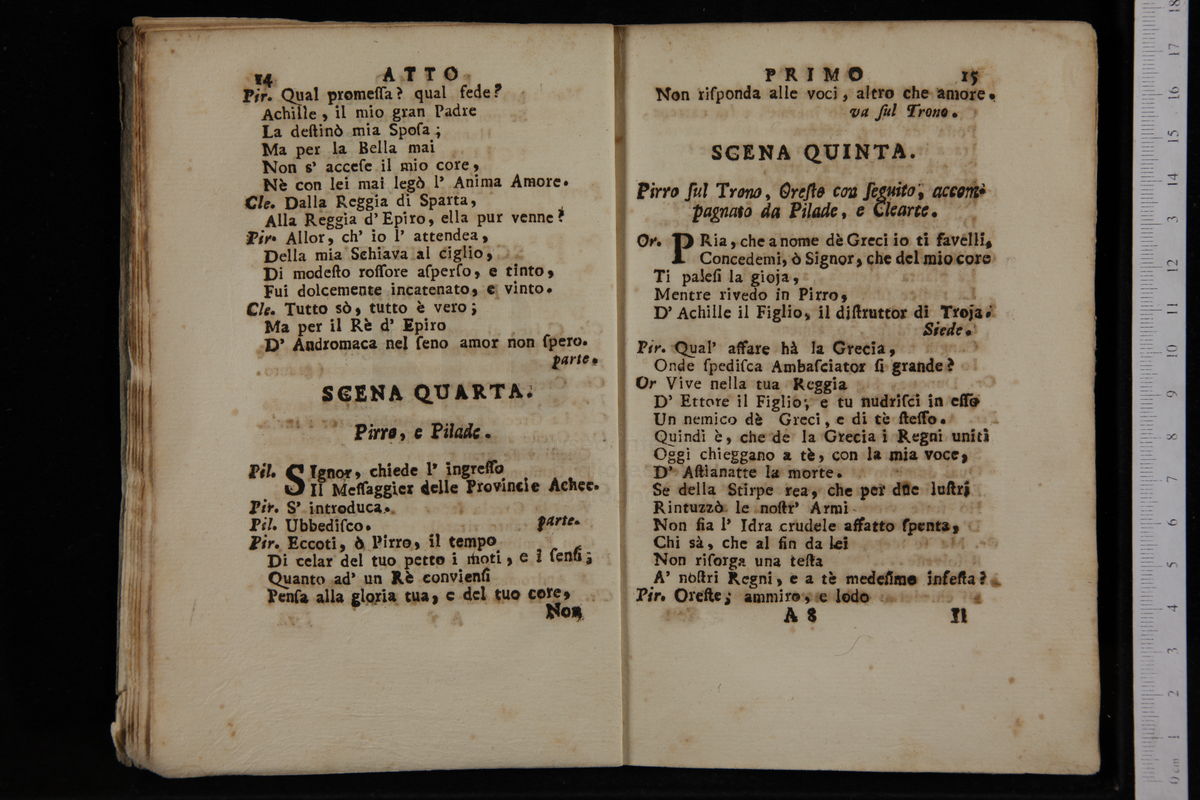 14 ATTO
Pir. Qual promeſſa? qual fede?
Achille, il mio gran Padre
La deſtinò mia Spoſa;
Ma per la Bella mai
Non s' acceſe il mio core,
Nè con lei mai legò l' Anima Amore.
Cle. Dalla Reggia di Sparta,
Alla Reggia d' Epiro, ella pur venne?
Pir. Allor, ch' io l' attendea,
Della mia Schiava al ciglio,
Di modeſto roſſore aſperſo, e tinto,
Fui dolcemente incatenato, e vinto.
Cle. Tutto sò, tutto è vero;
Ma per il Rè d' Epiro
D' Andromaca nel ſeno amor non ſpero.
parte.
SCENA QUARTA.
Pirro, e Pilade.
Pil. SIgnor, chiede l' ingreſſo
Il Meſſaggier delle Provincie Achee.
Pir. S' introduca.
Pil. Ubbediſco. parte.
Pir. Eccoti, ò Pirro, il tempo
Di celar del tuo petto i moti, e i ſenſi;
Quanto ad' un Rè convienſi
Penſa alla gloria tua, e del tuo core,
Non
PRIMO 15
Non riſponda alle voci, altro che amore.
va ſul Trono.
SCENA QUINTA.
Pirro ſul Trono, Oreſte con ſeguito, accom-
pagnato da Pilade, e Clearte.
Or. PRia, che a nome dè Greci io ti favelli,
Concedemi, ò Signor, che del mio core
Ti paleſi la gioja,
Mentre rivedo in Pirro,
D' Achille il Figlio, il diſtruttor di Troja.
Siede.
Pir. Qual' affare hà la Grecia,
Onde ſpediſca Ambaſciator ſi grande?
Or Vive nella tua Reggia
D' Ettore il Figlio, e tu nudriſci in eſſo
Un nemico dè Greci, e di tè ſteſſo.
Quindi è, che de la Grecia i Regni uniti
Oggi chieggano a tè, con la mia voce,
D' Aſtianatte la morte.
Se della Stirpe rea, che per due luſtri
Rintuzzò le noſtr' Armi
Non ſia l' Idra crudele affatto ſpenta,
Chi sà, che al fin da lei
Non riſorga una teſta
A' noſtri Regni, e a tè medeſimo infeſta?
Pir. Oreſte; ammiro, e lodo
A 8 Il